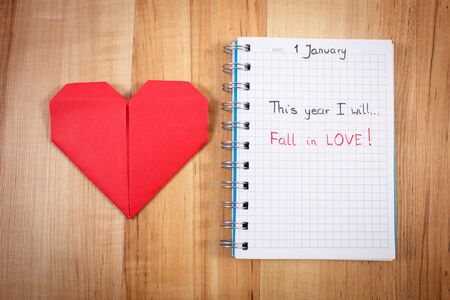 DATE: 1 January
This year I will...
Fall in LOVE!